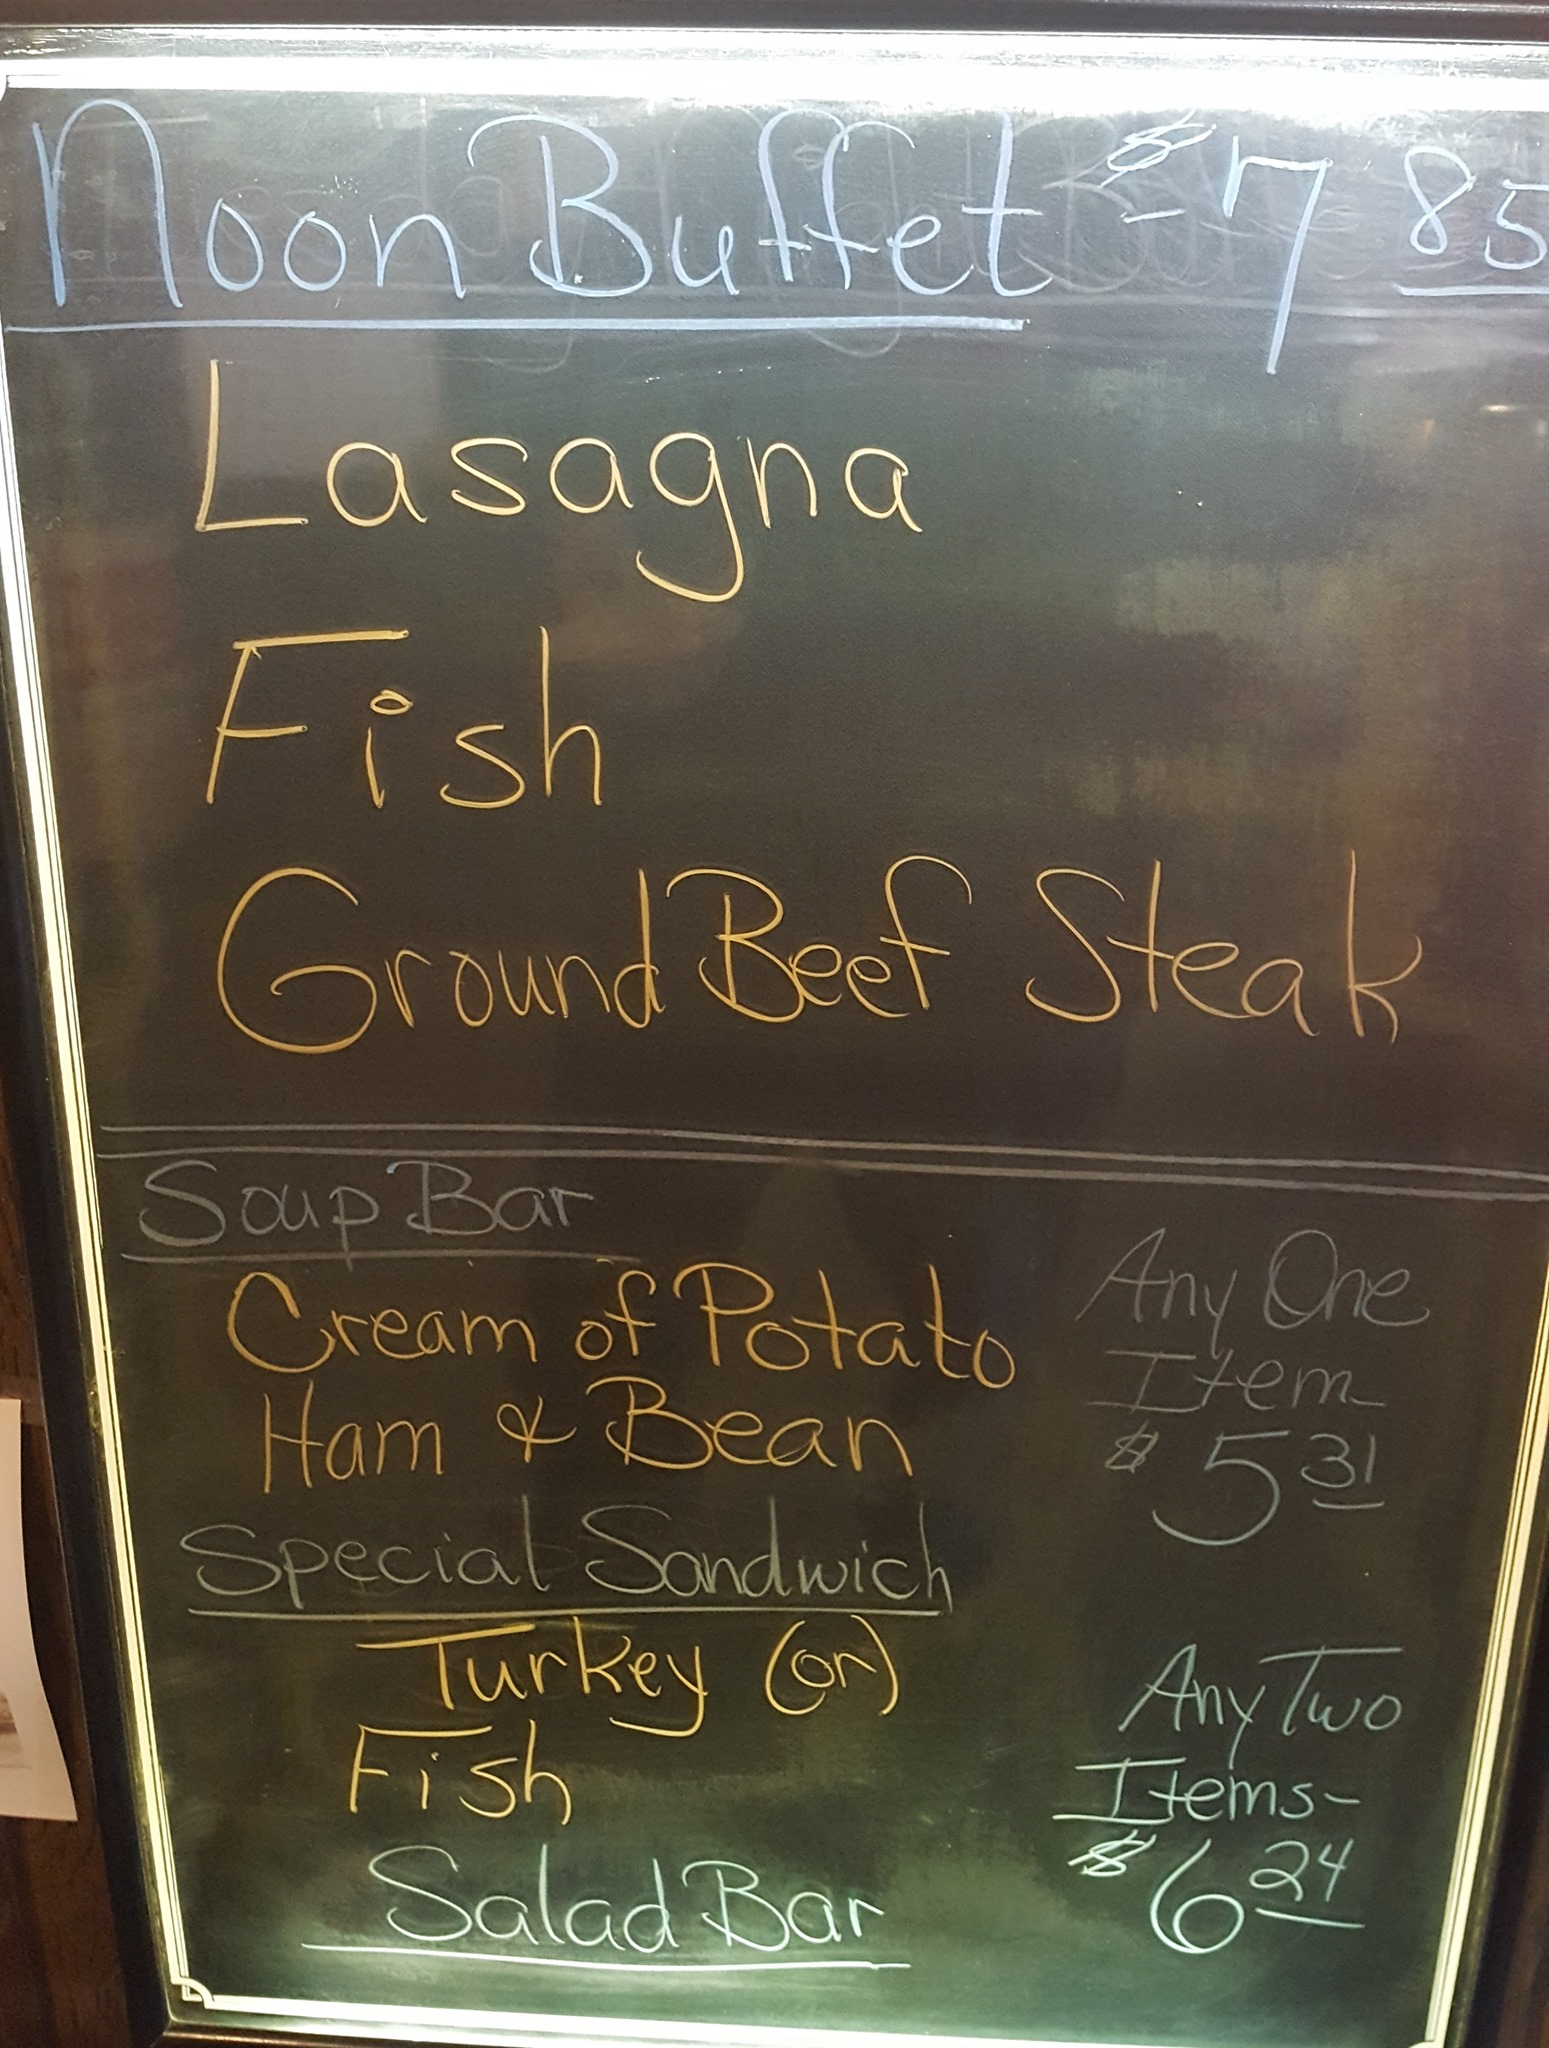 Noon Buffet - $7 85
Lasagna
Fish
Ground Beef Steak
Soup Bar
Cream of Potato
Ham & Bean
Any One
Item-
$5 31
Special Sandwich
Turkey (or)
Fish
Any Two
Items-
$6 24
Salad Bar